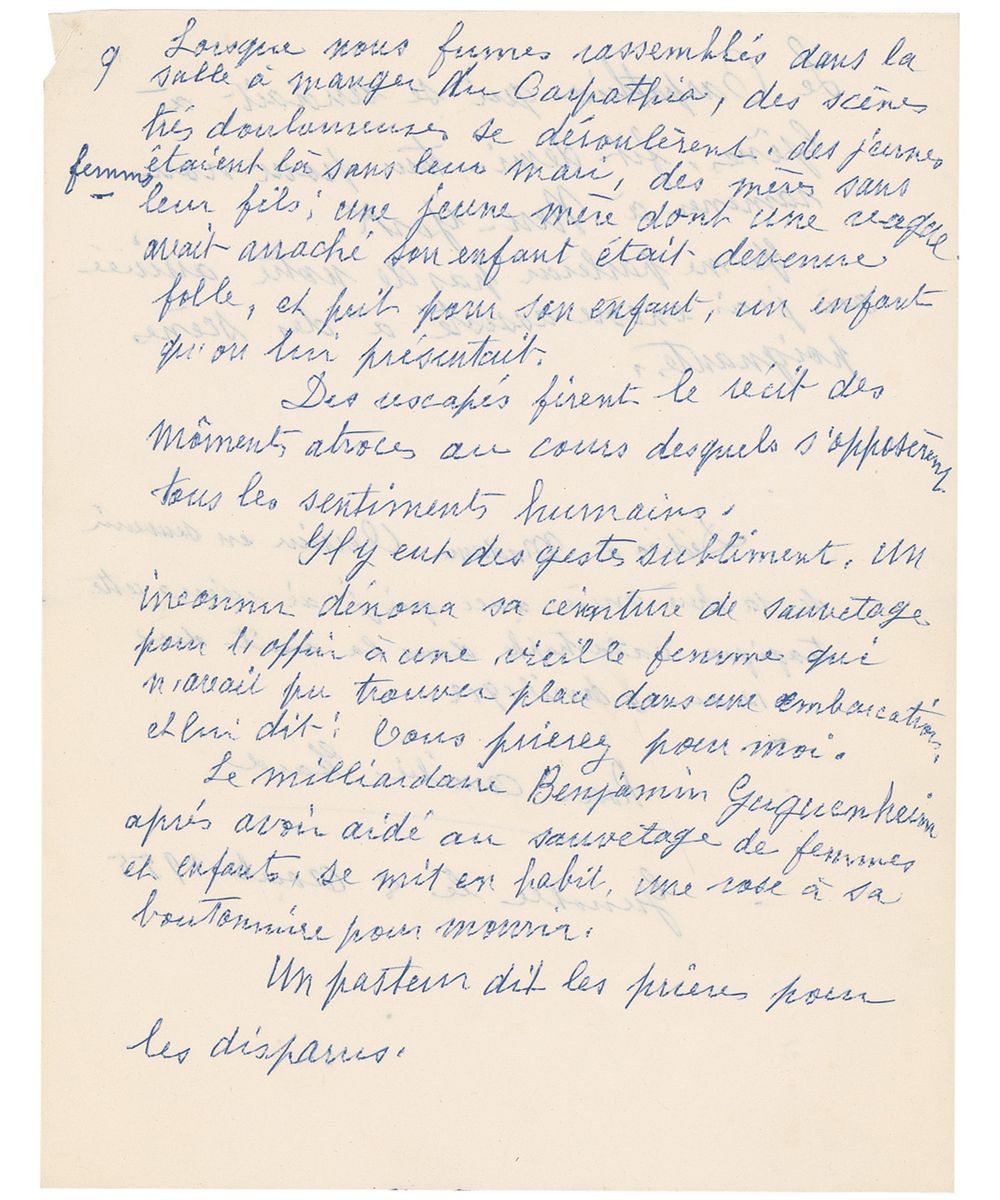 9
Lorsque nous fumes rassemblés dans la
salle à manger du Carpathia, des scènes
très douloureuses se déroulèrent. des jeunes
femmes étaient là sans leur mari, des mères sans
leur fils; une jeune mère dont une vague
avait arraché son enfant était devenue
folle, et prit pour son enfant, un enfant
qu'on lui présentait.
Des rescapés firent le récit des
mòments atroces au cours desquels s'opposèrent
tous les sentiments humains.
Il y eut des gestes subliment. Un
inconnu dénoua sa ceinture de sauvetage
pour l'offrir à une vieille femme qui
n'avait pu trouver place dans une embarcation,
et lui dit: Vous prierez pour moi.
Le milliardaire Benjamin Guguenheim
après avoir aidé au sauvetage de femmes
et enfants, se mit en habit, une rose à sa
boutonnière pour mourir.
Un pasteur dit les prières pour
les disparus.